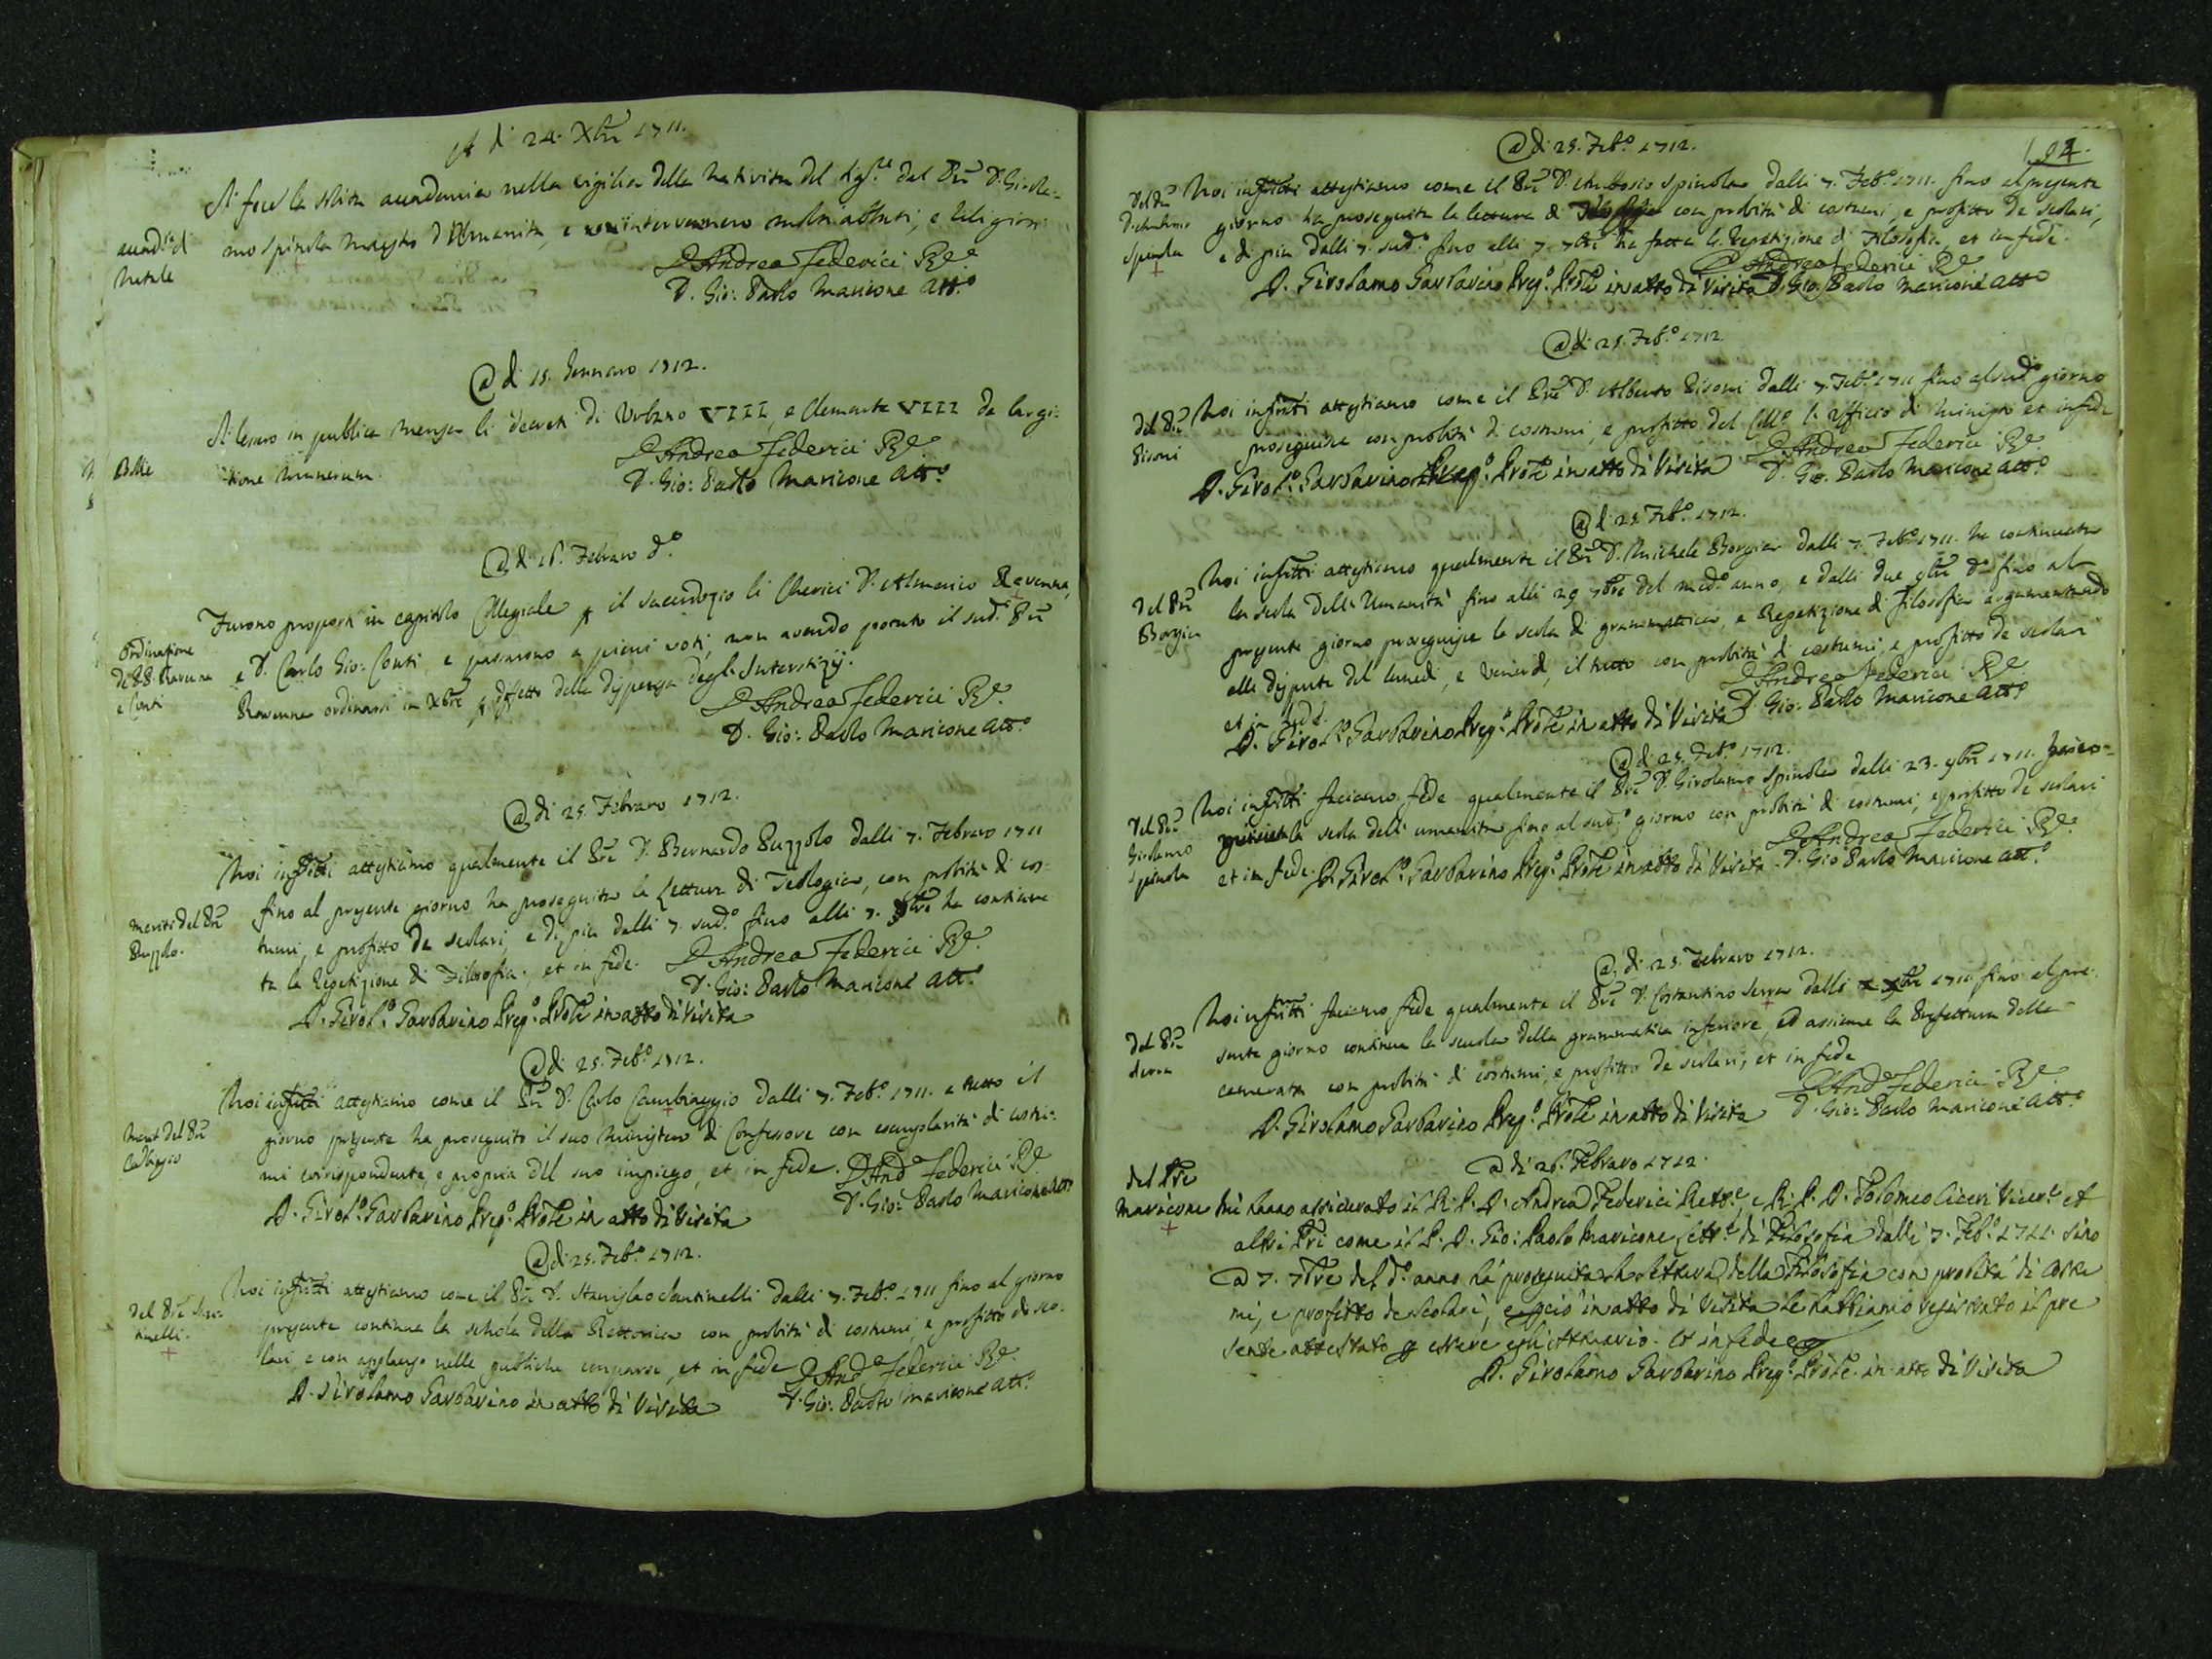 A di 24. Xbre 1711.
Si fece la solita accademia nella vigilia della natività del Sig.re dal Pre D. Girola-
mo Spinola maestro d'Umanità, e v'intervennero molti abbati, e religiosi
accad.a di
Natale
D Andrea Federici Re
D. Gio: Paolo Maricone att.o
@ di 15. Gennaro 1712.
Si lesero in publica mensa li decreti di Urbano VIII, e Clemente VIII de largi-
tione munerum.
Bolle
D Andrea Federici Re
D. Gio: Paolo Maricone att.o
@ di 16. Febraro d.o
Furono proposti in capitolo Collegiale p il sacerdozio li Cherici D. Almerico Ravenna,
e D. Carlo Gio: Conti, e passarono a pieni voti, non avendo potuto il sud.o Pre
Ravenna ordinarsi in Xbre p difetto della dispensa degl'Interstizij.
Ordinazione
de PP. Ravenna
e Conti
D Andrea Federici Re
D. Gio: Paolo Maricone att.o
@ di 25. Febraro 1712.
Noi infritti attestiamo qualmente il Pre D. Bernardo Puzzolo dalli 7. Febraro 1711
fino al presente giorno ha proseguita la Lettura di Teologia, con probità di cos-
tumi, e profitto de scolari, e di più dalli 7. sud.o fino alli 7. 7bre ha continua
ta la Repetizione di Filosofia; et in fede.
meriti del Pre
Puzzolo.
D Andrea Federici Re
D. Gio: Paolo Maricone att.o
D. Girol.o Garbarino Prep.o Prole in atto di Visita
@ di 25. Feb.o 1712.
Noi infritti attestiamo come il Pre D. Carlo Cambiaggio dalli 7. Feb.o 1711. a tutto il
giorno presente ha proseguito il suo ministero di Confessore con esemplarità di costu-
mi corrispondente, e propria del suo impiego, et in fede.
del Pre
D And.a Federici Re
D. Gio: Paolo Maricone att.o
D. Girol.o Garbarino Prep.o Prole in atto di Visita
@ di 25. Feb.o 1712.
Noi infritti attestiamo come il Pre D. Stanislao Santinelli dalli 7. Feb.o 1711 fino al giorno
presente continua la schola della Rettorica con probità di costumi, e profitto de sco-
lari, e con applauso nelle publiche comparse, et in fede
Del Pre San-
tinelli.
D And.a Federici Re
D. Gio: Paolo Maricone att.o
D. Girolamo Garbarino in atto di Visita
@ di 25. Feb.o 1712.
104.
Noi infritti attestiamo come il Pre D. Ambosio Spinola dalli 7. Feb.o 1711. fino al presente
giorno ha proseguita la lettura di con probità di costumi, e profitto de scolari,
e di più dalli 7. sud.o fino alli 7. 7bre ha fatta la Repetizione di Filosofia, et in fede.
Del Pre
D.
Spinola
D Andrea Federici Re
D. Girolamo Garbarino Prep.o Prole in atto di Visita D. Gio. Paolo Maricone att.o
@ di 25. Feb.o 1712.
Noi infritti attestiamo come il Pre D. Alberto Pisoni dalli 7. Feb.o 1711 fino al sud.o giorno
proseguisse con probità di costumi, e profitto del Coll.o l'Ufficio di Ministro et in fede
Del Pre
Pisoni
D Andrea Federici Re
D. Girol.o Garbarino Prep.o Prole in atto di Visita D. Gio. Paolo Maricone att.o
@ di 25. Feb.o 1712.
Noi infritti attestiamo qualmente il Pre D. Michele Borgia dalli 7. Feb.o 1711. ha continuata
la scola dell'Umanità fino alli 29 7bre del med.o anno, e dalli due 9bre d.o fino al
presente giorno proseguisse la scola di grammatica, e Repetizione di Filosofia argumentando
alle dispute del lunedì, e Venerdì, il tutto con probità di costumi, e profitto de scolari
et in fede.
Del Pre
Borgia
D Andrea Federici Re
D. Girol.o Garbarino Prep.o Prole in atto di Visita D. Gio: Paolo Maricone att.o
@ di 25. Feb.o 1712.
Noi infritti facciamo fede qualmente il Pre D. Girolamo Spinola dalli 23. 9bre 1711.
la scola dell'umanità fino al sud.o giorno con probità di costumi, e profitto de scolari
et in fede. D. Girol.o Garbarino Prep.o Prole in atto di Visita
Del Pre
Girolamo
Spinola
D Andrea Federici Re
D. Gio Paolo Maricone att.o
@ di 25. Febraro 1712.
Noi infritti facciamo fede qualmente il Pre D. Costantino Serra dalli 1711 fino al pre-
sente giorno continua la scuola della grammatica inferiore, ed assieme la Prefettura della
camerata con probità di costumi, e profitto de scolari, et in fede
Del Pre
Serra
D And.a Federici Re
D. Girolamo Garbarino Prep.o Prole in atto di Visita D. Gio: Paolo Maricone att.o
@ di 26. Febraro 1712.
del Pre
Maricone
Mi hanno assicurato il R. P. D. Andrea Federici Rett.e, e R. P. D. Tolomeo Ciceri Vicer.e et
altri Pri come il P. D. Gio: Paolo Maricone Lett.e di Filosofia dalli 7. Feb.o 1711. sino
a 7. 7bre del d.o anno ha proseguita la lettura della Filosofia con probità di costu
mi, e profitto de scolari, e p ciò in atto di Visita le habbiamo registrato il pre
sente attestato p essere egli Attuario. Et in fede
D. Girolamo Garbarino Prep.o Prole. in atto di Visita